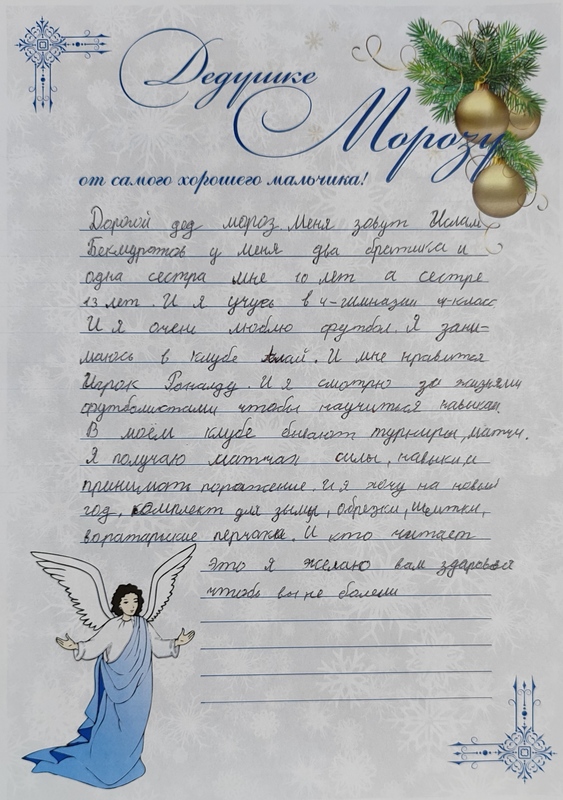 Дедушке
Морозу
от самого хорошего мальчика!
Дорогой дед мороз. Меня зовут Ислам
Бекмуратов у меня два братика и
одна сестра мне 10 лет а сестре
13 лет. И я учусь в 4-гимназии 4-класс
И я очень люблю футбол. Я зани-
маюсь в клубе. И мне нравится
Игрок Роналду. И я смотрю за жизнями
футболистами чтобы научиться навыкам
В моём клубе бывают турниры, матчи.
Я получаю матчах силы, навыки, и
принимать поражение. И я хочу на новый
год, комплект для зимы, обрезки, щитки,
варатарские перчака. И кто читает
это я желаю вам здоровья
чтобы вы не болели